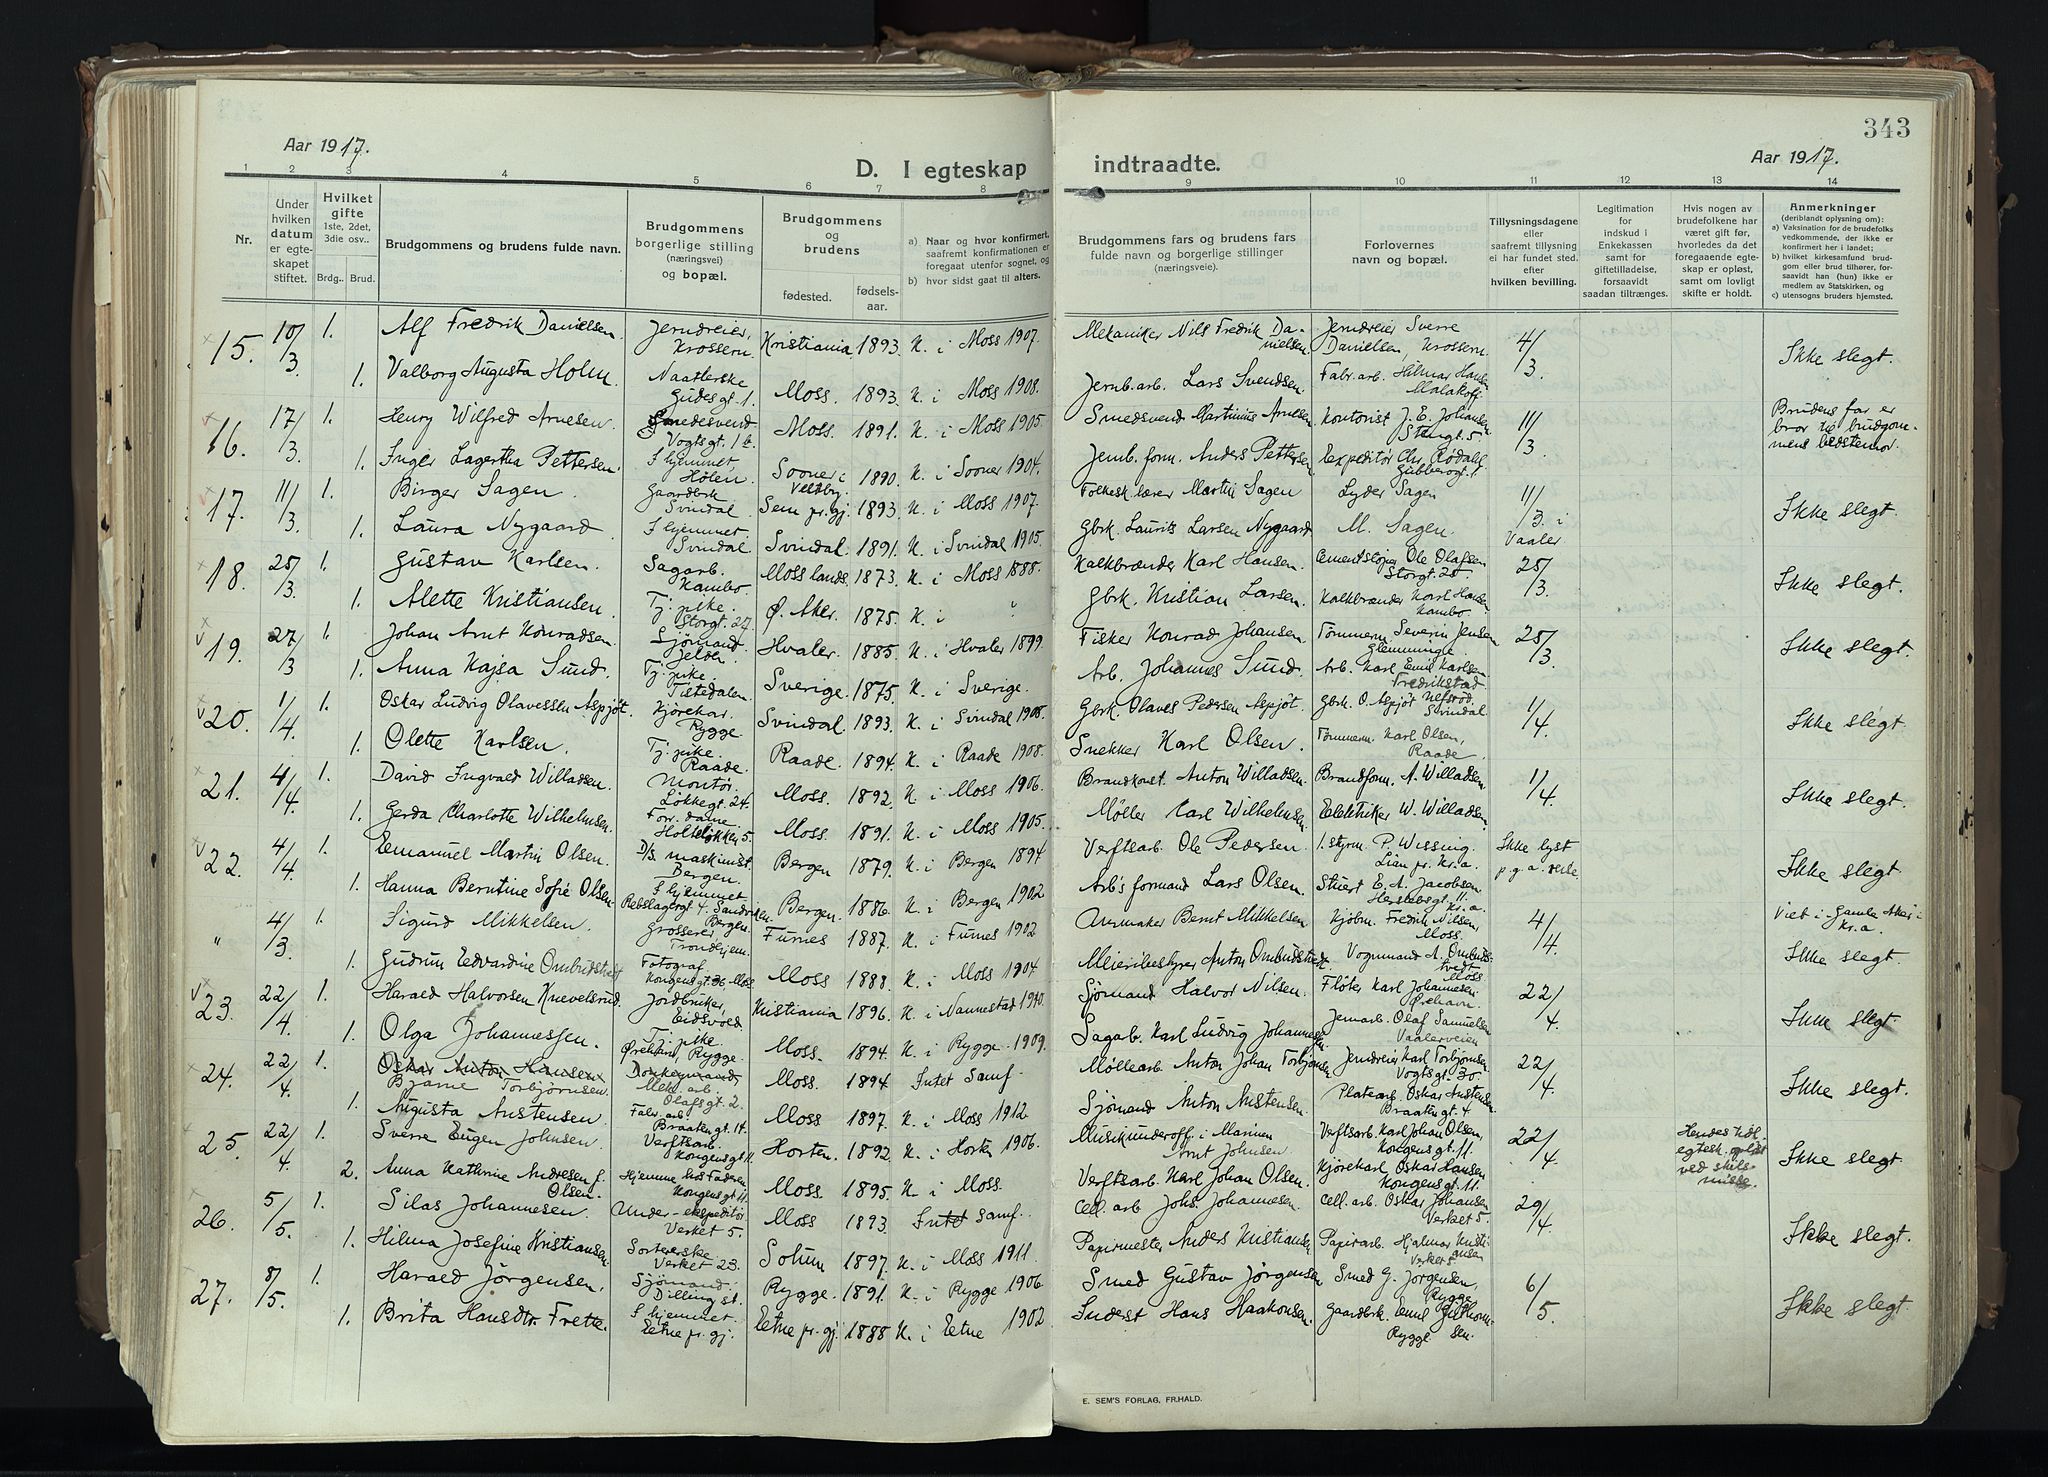 343
Aar 1917.
D. I egteskap indtraadte.
Aar 1917.
1 2 3 4 5 6 7 8 9 10 11 12 13 14
Nr.
Under hvilken datum er egteskapet stiftet.
Hvilket gifte 1ste, 2det, 3die osv..
Brdg.. Brud.
Brudgommens og brudens fulde navn.
Brudgommens borgerlige stilling (næringsvei) og bopæl.
Brudgommens og brudens
fødested. fødselsaar.
a) Naar og hvor konfirmert, saafremt konfirmationen er foregaat utenfor sognet, og
b) hvor sidst gaat til alters.
Brudgommens fars og brudens fars fulde navn og borgerlige stillinger (næringsveie).
Forlovernes navn og bopæl.
Tillysningsdagene eller saafremt tillysning ei har fundet sted. efter hvilken bevilling.
Legitimation for indskud i Enkekassen samt for giftetilladelse, forsaavidt saadan tiltrænges.
Hvis nogen av brudefolkene har været gift før, hvorledes da det foregaaende egteskap er opløst, samt om lovligt skifte er holdt.
Anmerkninger (deriblandt oplysning om):
a) Vaksination for de brudefolks vedkommende, der ikke er konfirmert her i landet;
b) hvilket kirkesamfund brudgom eller brud tilhører, forsaavidt han (hun) ikke er medlem av Statskirken, og
c) utensogns bruders hjemsted.
15. 10/3 1. Alf Fredrik Danielsen. Jerndreier, Krossern. Kristiania 1893. K. i Moss 1907. Mekaniker Nils Fredrik Danielsen. Jerndreier Sverre Danielsen, Krossern. 4/3. Ikke slegt.
1. Valborg Augusta Holm. Naatlerske Gudes gt. 1. Moss. 1893. K. i Moss 1908. Jernb. arb. Lars Svendsen. Fabr. arb. Hilmar Hansen Malakoff.
16. 17/3 1. Henry Wilfred Arnesen. Smedesvend Vogtsgt. 1 b. Moss. 1891. K. i Moss 1905. Smedsvend Martinius Arnesen Kontorist J. E. Johansen Stengt. 5. 11/3. Brudens far er bror til brudgommens bedstemor.
1. Inger Lagertha Pettersen. I hjemmet, Hølen. Sooner i Vestby. 1890. K. i Sooner 1904. Jernb. form. Anders Pettersen Expeditør Chr. Rødal, Gubberogt. 1
17. 11/3 1. Birger Sagen. Gaardbrk Svindal. Sem pr. gj. 1893. K. i Moss 1907. Folkesk. lærer Martin Sagen Lyder Sagen 11/3. i Vaaler. Ikke slegt.
1. Laura Nygaard. I hjemmet. Svindal. Svindal. 1891. K. i Svindal 1905. Gbrk. Laurits Larsen Nygaard M. Sagen.
18. 25/3 1. Gustav Karlsen. Sagarb. Kambo. Moss lands. 1873. K. i Moss 1888. Kalkbrænder Karl Hansen. Cementstøper Ole Olafsen Storgt. 25. 25/3. Ikke slegt.
1. Alette Kristiansen. Tj. pike. Storgt. 27 Ø. Aker. 1875. K. i " Gbrk. Kristian Larsen. Kalkbrænder Karl Hansen Kambo
19. 27/3 1. Johan Arnt Konradsen. Sjømand Jeløen. Hvaler. 1885. K. i Hvaler 1899. Fisker Konrad Johansen. Tømmerm. Severin Jensen Glemminge. 25/3. Ikke slegt.
1. Anna Kajsa Sund. Tj. pike. Tistedalen. Sverige. 1875. K. i Sverige. Arb. Johannes Sund. Arb. Karl Emil Karlsen Fredrikstad.
20. 1/4. 1. Oskar Ludvig Olavessen Aspjøt. Kjørekar. Rygge. Svindal. 1893. K. i Svindal 1908. Gbrk. Olaves Pedersen Aspjøt. Gbrk. O. Aspjøt Svindal. 1/4. Ikke slegt.
1. Olette Karlsen. Tj. pike Raade. Raade. 1894. K. i Raade 1908. Snekker Karl Olsen. Tømmerm. Karl Olsen, Raade.
21. 4/4 1. David Ingvald Willadsen. Montør. Løkkegt. 24. Moss. 1892. K. i Moss 1906. Brandkonst. Anton Willadsen. Brandform. A. Willadsen 1/4. Ikke slegt.
1. Gerda Charlotte Wilhelmsen. Forr. dame. Holteløkken 5. Moss. 1891. K. i Moss 1905. Møller Carl Wilhelmsen. Elektriker W. Willadsen.
22. 4/4. 1. Emanuel Martin Olsen. D/s. maskinist. Bergen. Bergen 1879. K. i Bergen 1894 Verftsarb. Ole Pedersen. 1. styrm. P. Wissing. Lian pr. Kr.a. Ikke lyst p. g. a. reise. Ikke slegt.
1. Hanna Berntine Sofie Olsen I hjemmet Rebslagergt 4. Sandviken Bergen. Bergen. 1886. K. i Bergen 1902 Arb's formand Lars Olsen. Stuert E. A. Jacobsen Herslebsgt. 11. Kr.a.
" 4/3 1. Sigurd Mikkelsen. Grosserer Trondhjem. Furnes 1887. K. i Furnes 1902 Urmaker Bernt Mikkelsen Kjøbm. Fredrik Nilsen, Moss. 4/4 Viet i Gamle Aker i Kr.a. Ikke slegt.
1. Gudrun Edvardine Ombudstvedt Fotograf Kongensgt. 36, Moss Moss 1888. K. i Moss 1904 Meieribestyrer Anton Ombudstvedt. Vognmand A. Ombudstvedt Moss
23. 22/4. 1. Harald Halvorsen Knevelsrud. Jordbruker, Eidsvold Kristiania 1896. K. i Nannestad 1910. Sjømand Halvor Nilsen. Fløter Karl Johannesen. Ørehavn. 22/4. Ikke slegt.
1. Olga Johannessen. Tj. pike. Ørehavn, Rygge. Moss. 1894. K. i Rygge 1909. Sagarb. Karl Ludvig Johannessen Jernarb. Olaf Samuelsen Vaalerveien
24. 22/4. 1. Oskar Anton Hansen Bjarne Torbjørnsen. Donkeymand, Mek. arb Olafsgt. 2. Moss. 1894 Intet Samf. Møllearb. Anton Johan Torbjørnsen Jerndreier Karl Torbjørnsen Vogtsgt. 30 22/4. Ikke slegt.
1. Augusta Austensen. Fabr. arb. Braatengt. 14. Moss 1897. K. i Moss 1912 Sjømand Anton Austensen. Platearb. Oskar Austensen. Braatengt. 4
25. 22/4. 1. Sverre Eugen Johnsen. Verftsarb. Kongensgt. 11. Horten. 1892. K. i Horten 1906. Musikunderoff. i Marinen Arnt Johnsen. Verftsarb. Karl Johan Olsen, Kongensgt. 11. 22/4. Hendes tidl. egtesk. opløst ved skilsmisse. Ikke slegt.
2. Anna Kathrine Andresen f. Olsen. Hjemme hos Faderen Kongensgt. 11 Moss. 1895. K. i Moss. Verftsarb. Karl Johan Olsen. Kjørekarl Oskar Hansen Kongensgt. 11.
26. 5/5. 1. Silas Johannesen. Under-ekspeditør Verket 5. Moss 1893 Intet samf. Cell. arb Johs. Johannesen. Cell. arb. Oskar Johansen Verket 5. 29/4 Ikke slegt.
1. Hilma Josefine Kristiansen Sortererske Verket 23. Solum 1897. K. i Moss 1911. Papirmester Anders Kristiansen Papirarb. Hjalmar Kristiansen Verket 5
27. 8/5. 1. Harald Jørgensen, Sjømand. Dilling st. Rygge. 1891. K. i Rygge 1906. Smed Gustav Jørgensen Smed G. Jørgensen, Rygge 6/5. Ikke slegt.
1. Brita Hansdtr. Frette. I hjemmet. Etne pr. gj. Etne pr. gj. 1888 K. i Etne 1902 Inderst Hans Haakonsen. Gaardbrk. Rygge
E. SEM'S FORLAG, FR.HALD.